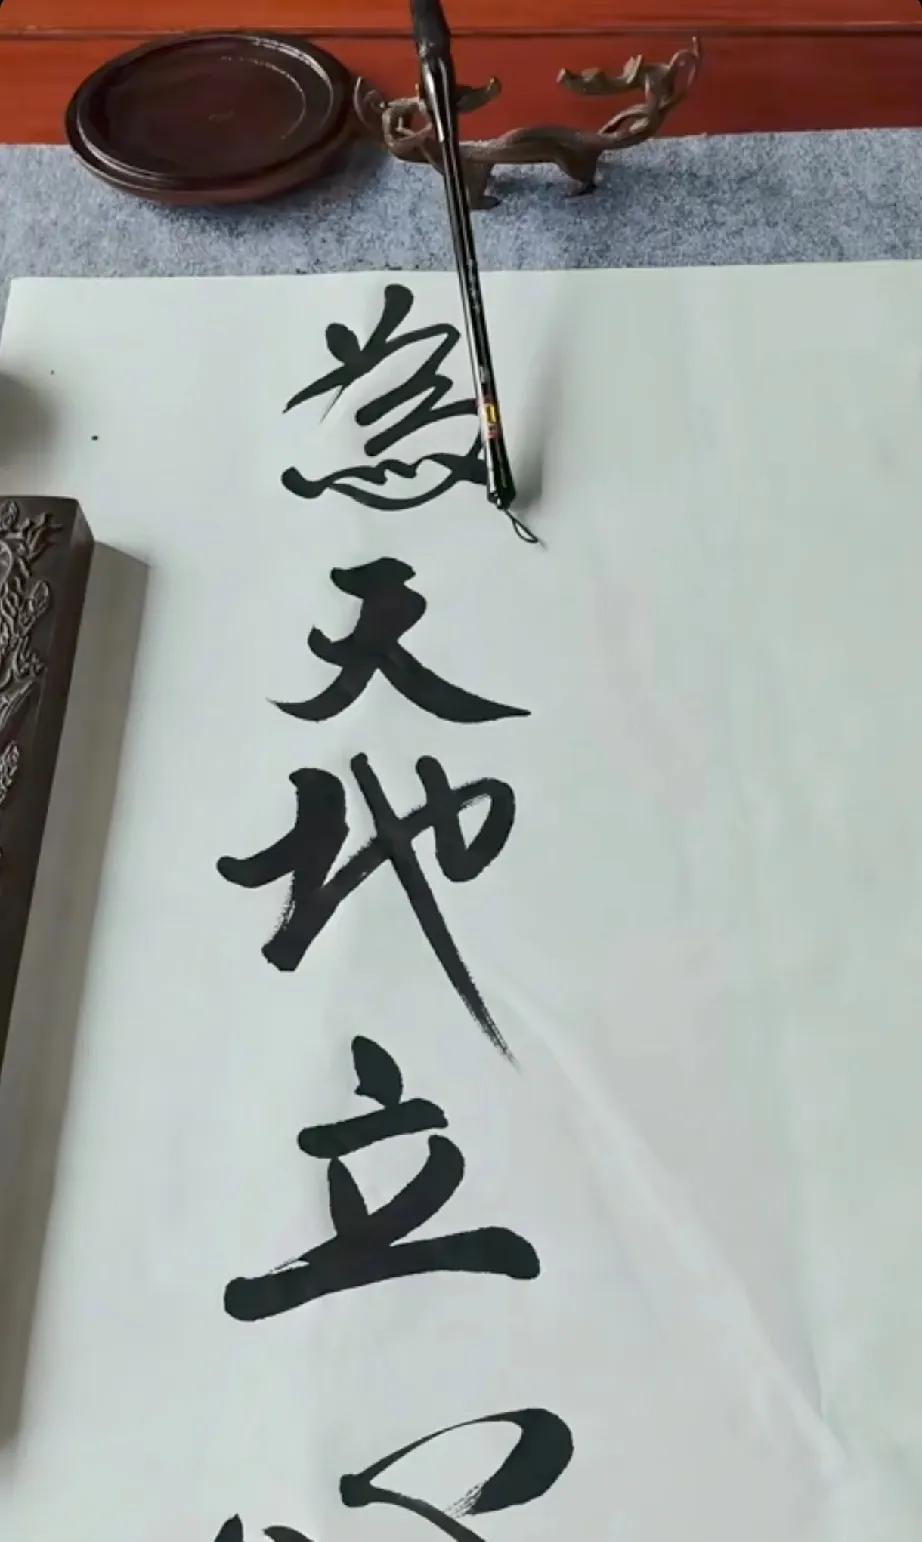 為天地立